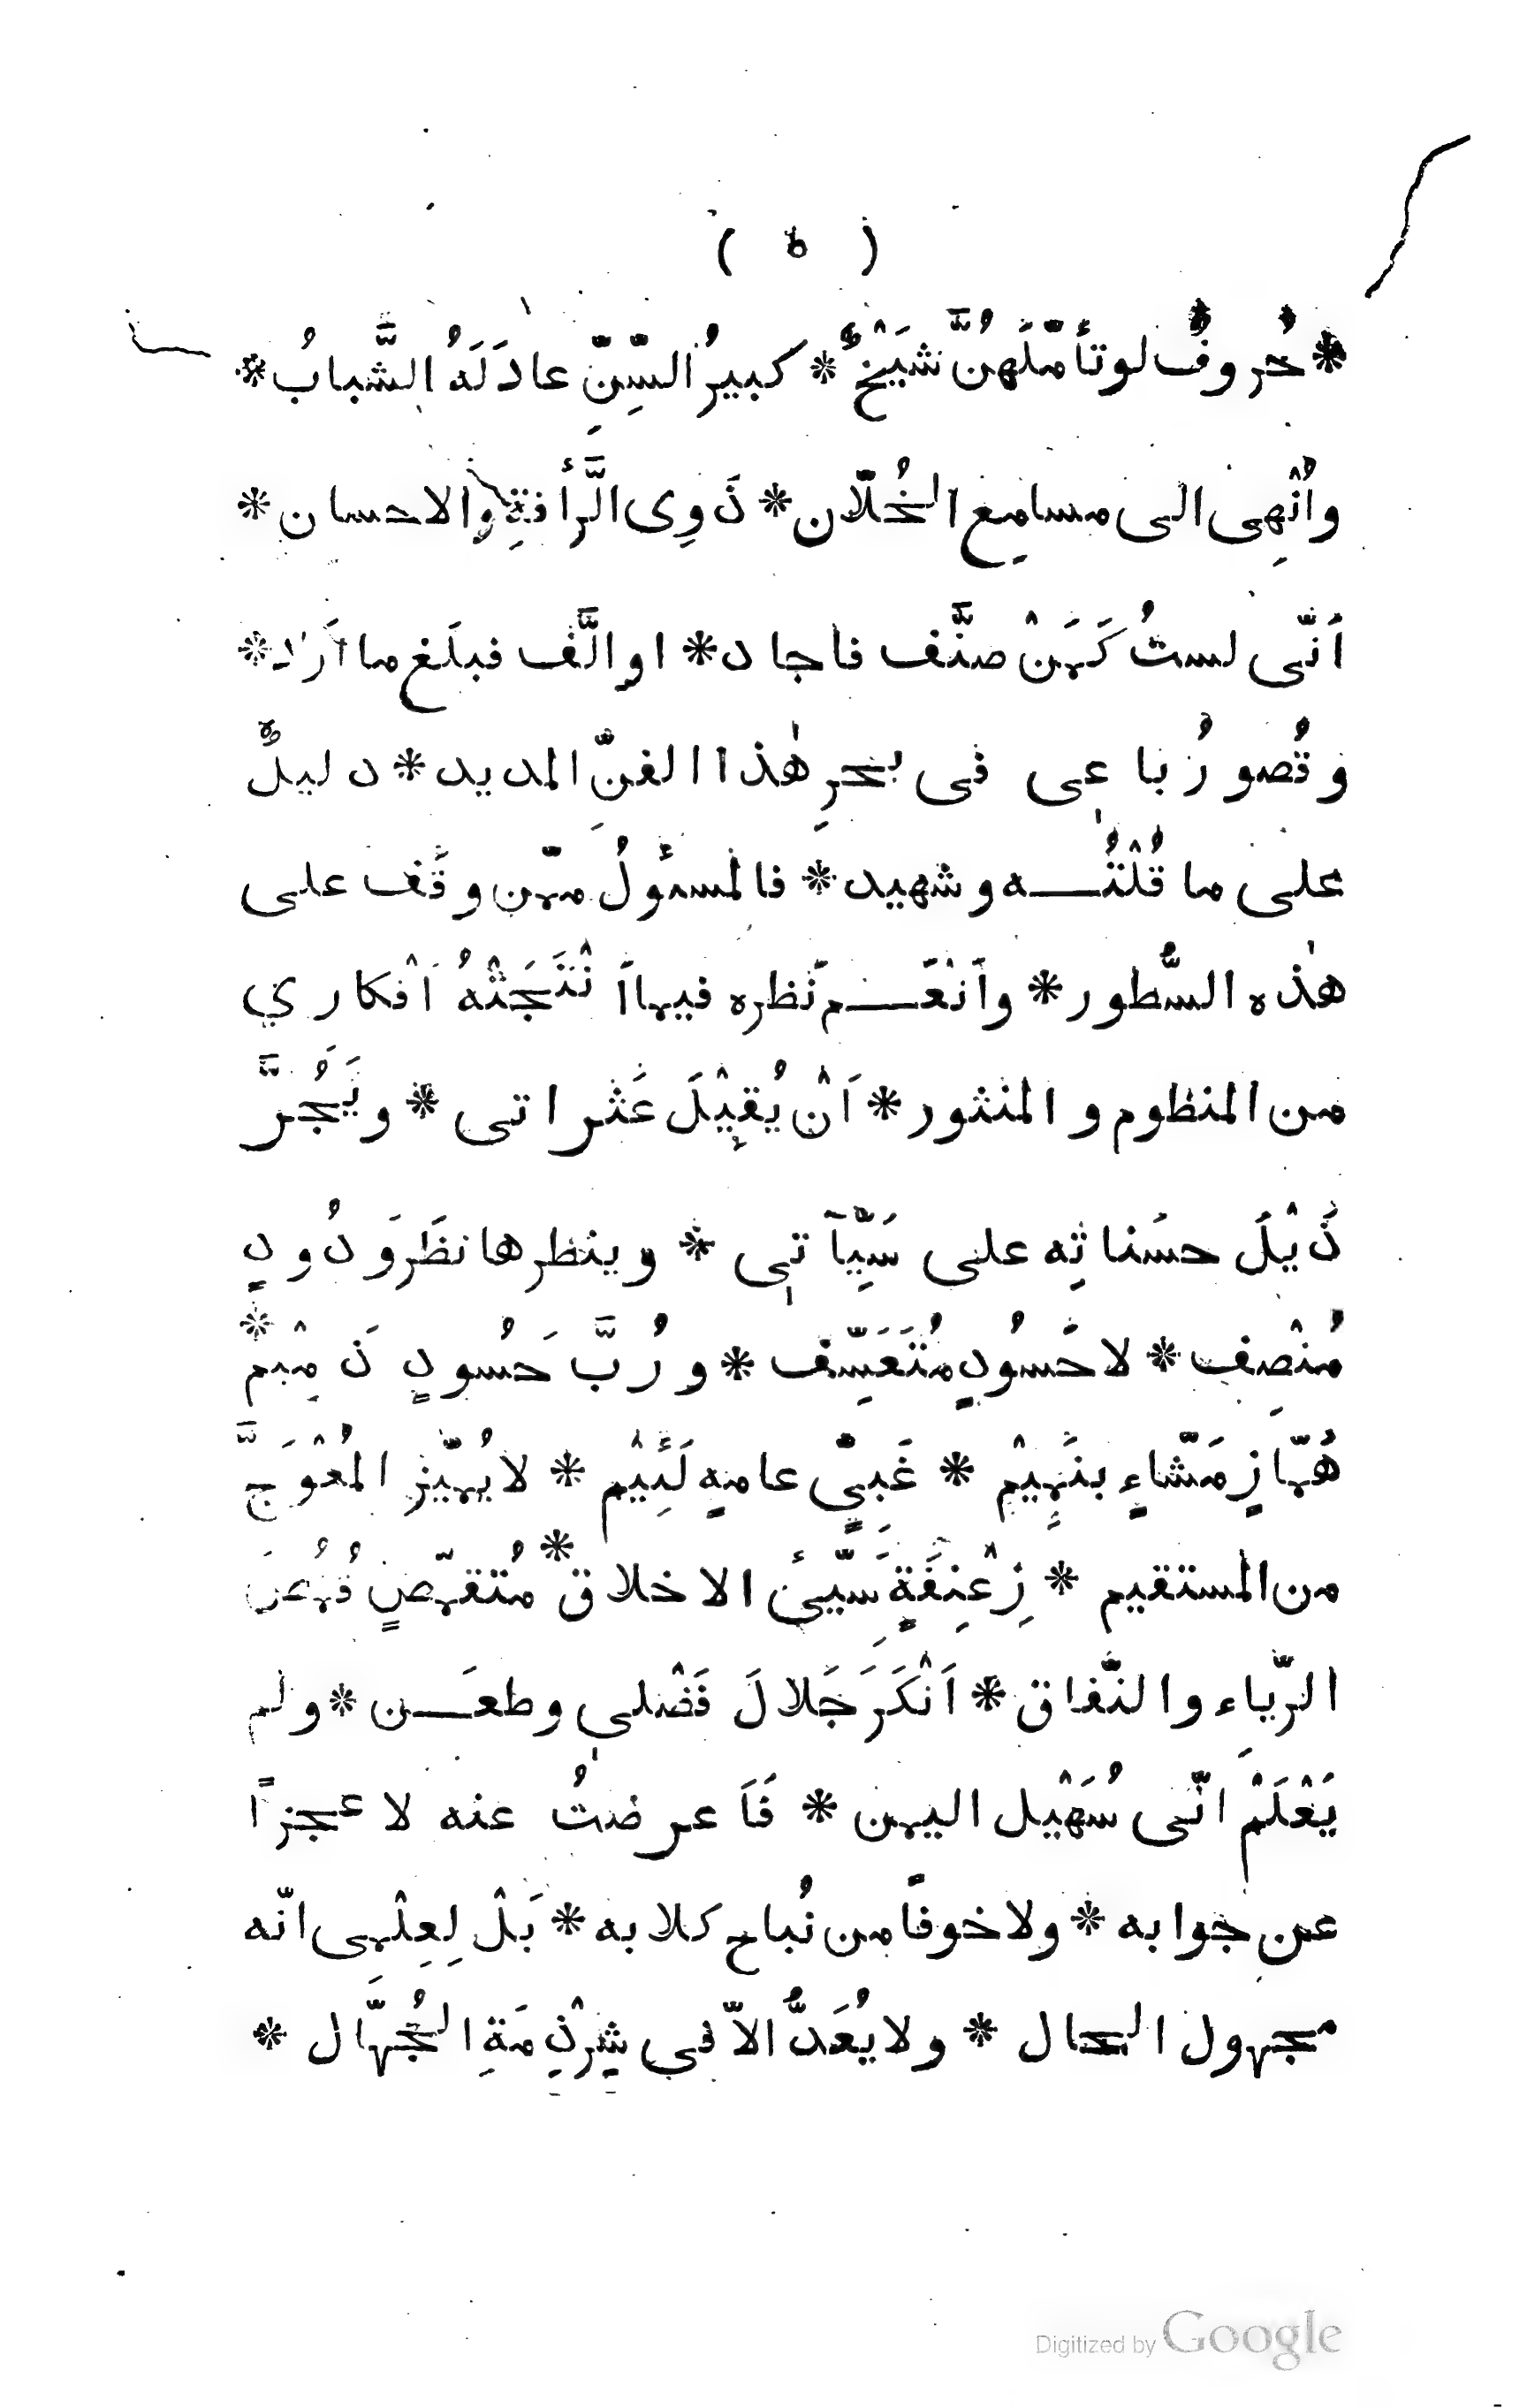 ( ٥ )
* حُروفٌ لو تأمّلَهُنَّ شَيْخٌ * كبيرُ السِّنِّ عادَ لَهُ الشَّبابُ *
واُنْهِى الى مسامِع الخُلّان * ذَوِى الرَّأفةِ والاحسان *
اَنّى لستُ كَمَنْ صنَّف فاجاد * او الَّف فبلَغ ما اَراد *
وقُصورُ باعِى فى بحرِ هٰذا الفنِّ المديد * دليلٌ
على ما قُلْتُه وشهيد * فالمسئولُ ممّن وقَف على
هٰذه السُّطور * واَنْعَم نَظره فيما اَنْتَجَتْهُ اَفْكاري
من المنظوم و المنثور * اَنْ يُقِيْلَ عَثَراتى * ويَجُرَّ
ذَيْلَ حسَناتِه على سَيِّآتى * وينظرها نظَر وَدُودٍ
مُنْصِف * لا حَسُودٍ مُتَعَسِّف * ورُبَّ حَسُودٍ ذَمِيْم *
هَمّازٍ مَشّاءٍ بنَمِيْم * غَبىٍّ عامهٍ لَئِيْم * لا يُميّز المُعْوَجَّ
من المستقيم * زِعْنِفَةٍ سَيِّئ الاخلاق * مُتقمّصٍ قُمُصَ
الرِّياء والنّفاق * اَنْكَرَ جَلالَ فَضْلى وطعَن * ولم
يَعْلَمْ انّى سُهَيْل اليمن * فَاَعرضتُ عنه لا عجزاً
عن جوابه * ولا خوفاً من نُباح كلابه * بَلْ لِعِلْمِى انّه
مجهول الحال * ولا يُعَدُّ الاّ فى شِرْذِمَةِ الجُهَّال *
Digitized by Google